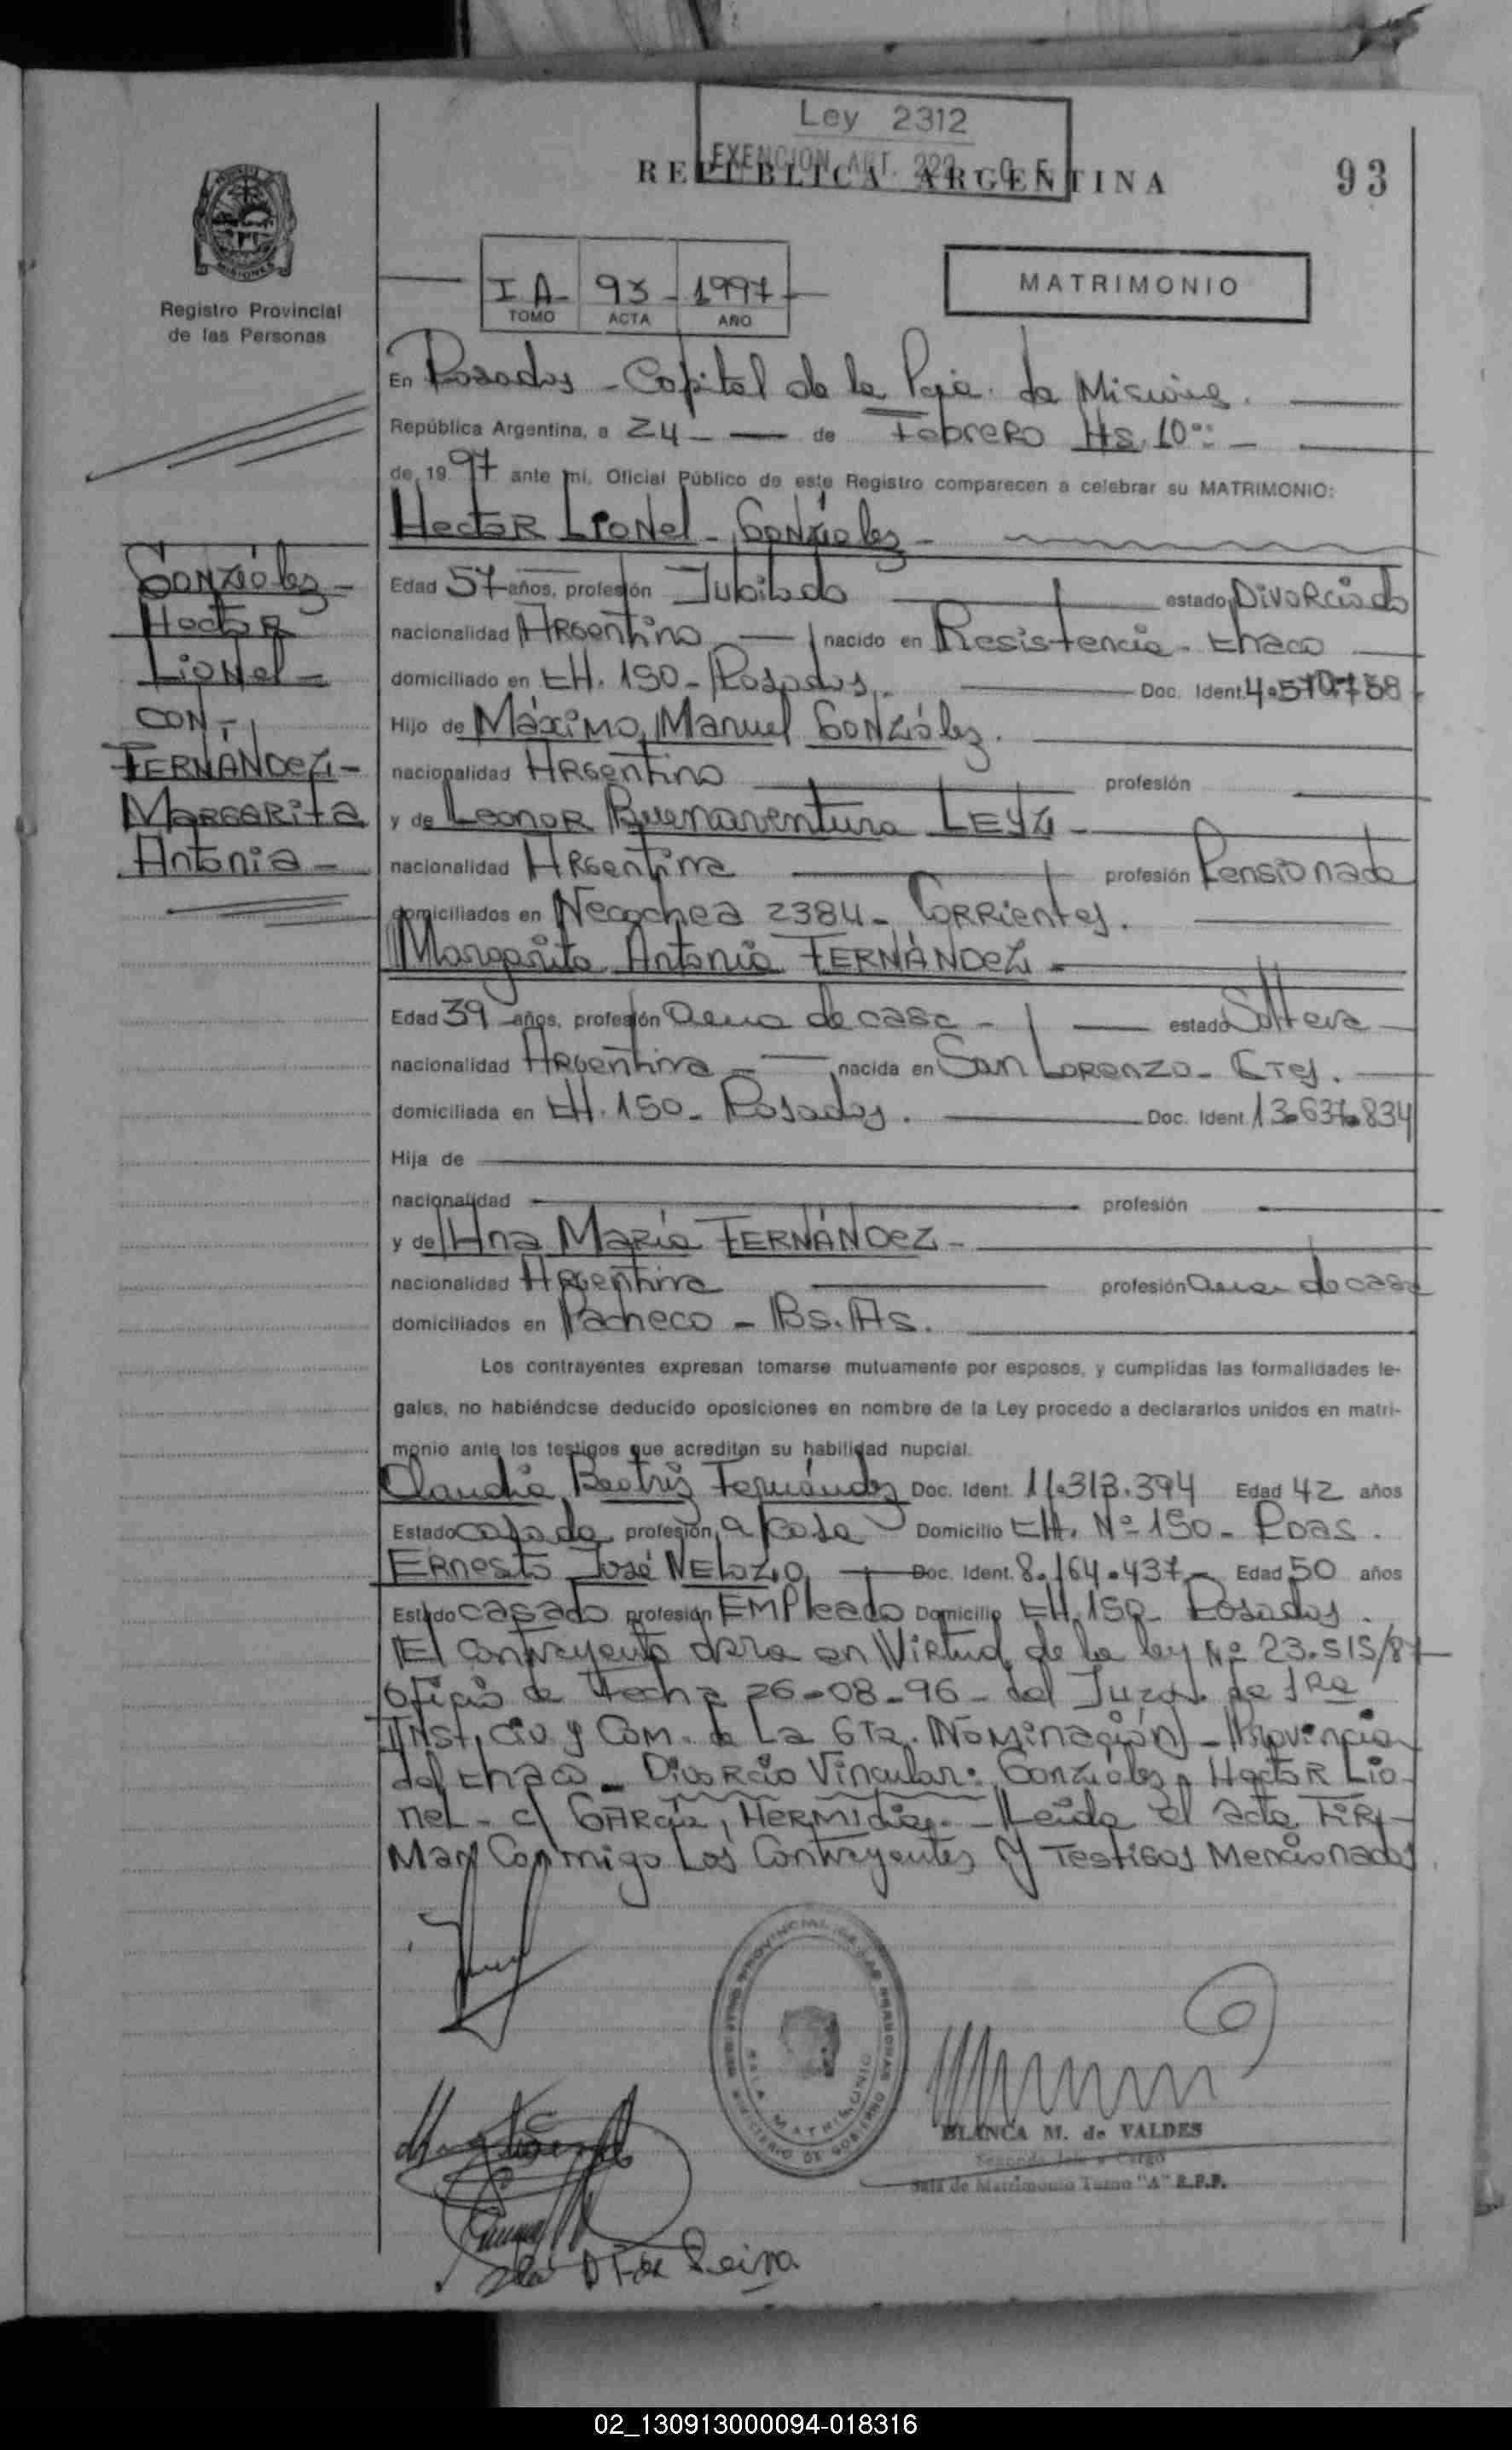 Ley 2312
EXENCION ART. 222
REPUBLICA ARGENTINA
93
MISIONES
Registro Provincial
de las Personas
I A - 93 - 1997
TOMO ACTA AÑO
MATRIMONIO
En Posadas - Capital de la Pcia. de Misiones.
República Argentina, a 24 de Febrero Hs. 10
de 1997 ante mí, Oficial Público de este Registro comparecen a celebrar su MATRIMONIO:
Hector Lionel - González -
González -
Hector
Lionel -
CON -
FERNÁNDEZ -
MARGARITA
Antonia -
Edad 57 años, profesión Jubilado estado Divorciado
nacionalidad Argentino nacido en Resistencia - Chaco
domiciliado en CH. 150 - Posadas. Doc. Ident. 4.570.758
Hijo de Máximo Manuel González.
nacionalidad Argentino profesión
y de Leonor Buenaventura LEYZ -
nacionalidad Argentina profesión Pensionada
domiciliados en Necochea 2384 - Corrientes.
Margarita Antonia FERNÁNDEZ -
Edad 39 años, profesión ama de casa - estado Soltera
nacionalidad Argentina nacida en San Lorenzo - Ctes.
domiciliada en CH. 150 - Posadas. Doc. Ident. 13.637.834
Hija de
nacionalidad profesión
y de Ana María FERNÁNDEZ -
nacionalidad Argentina profesión ama de casa
domiciliados en Pacheco - Bs. As.
Los contrayentes expresan tomarse mutuamente por esposos, y cumplidas las formalidades le-
gales, no habiéndose deducido oposiciones en nombre de la Ley procedo a declararlos unidos en matri-
monio ante los testigos que acreditan su habilidad nupcial.
Claudia Beatriz Fernández Doc. Ident. 11.313.394 Edad 42 años
Estado casada profesión a casa Domicilio CH. Nº 150 - Pdas.
Ernesto José Doc. Ident. 8.164.437 - Edad 50 años
Estado casado profesión EMPleado Domicilio CH. 150 - Posadas.
El Contrayente en Virtud de la ley Nº 23.515/87
oficio de Fecha 26-08-96 - del Juzg. de 1Ra
Inst. Civ. y Com. de La 6ta. Nominación - Provincia
del Chaco - Divorcio Vincular: González, Hector Lio-
nel - c/ García, Hermidia - Leída el acta FIR-
Man Conmigo Los Contrayentes Y Testigos Mencionados
REGISTRO PROVINCIAL DE LAS PERSONAS
SALA MATRIMONIO
MINISTERIO DE GOBIERNO
BLANCA M. de VALDES
Segundo Jefe a Cargo
Sala de Matrimonio Turno "A" R.P.P.
02_130913000094-018316